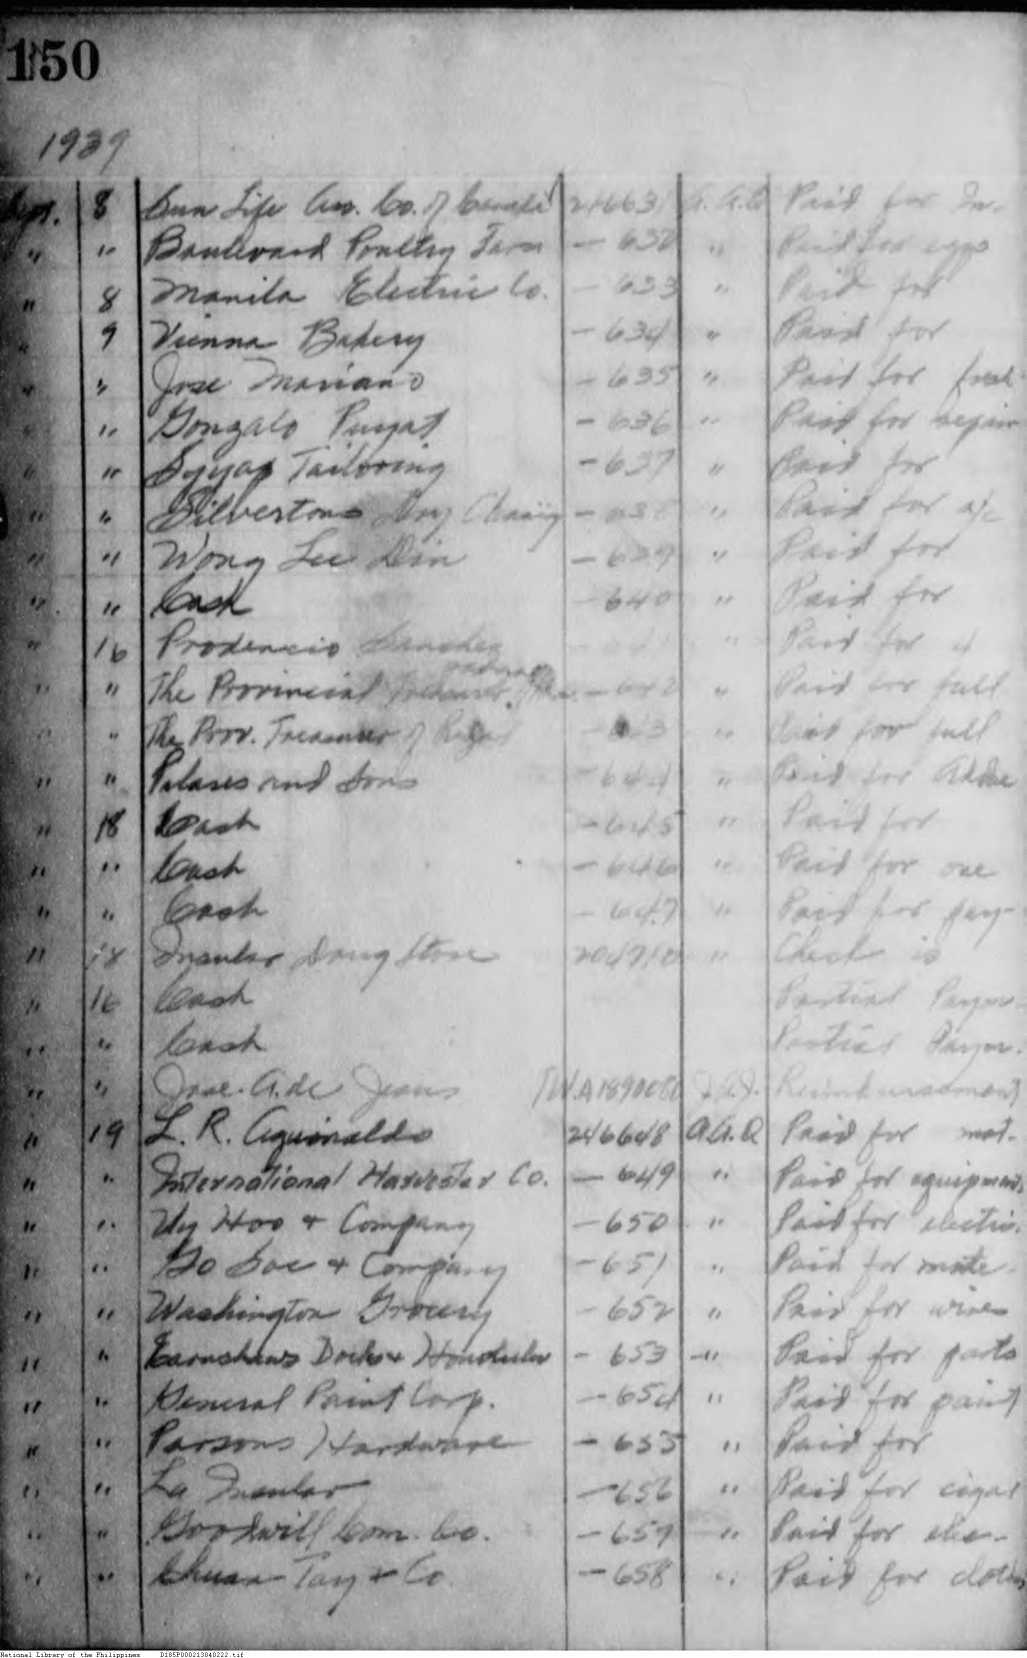 150
1939
Sept. 8 Sun Life Ass. Co. of Canada 246631 A.A.Q Paid for In-
" " Boulevard Poultry Farm - 632 " Paid for eggs
" 8 Manila Electric Co. - 633 " Paid for
" 9 Vienna Bakery - 634 " Paid for
" " Jose Mariano - 635 " Paid for
" " Gonzalo Puyat - 636 " Paid for repair
" " Syyap Tailoring - 637 " Paid for
" " Silvertone Dry - 638 " Paid for a/c
" " Wong Lee Din - 639 " Paid for
" " Cash - 640 " Paid for
" 16 Prodencio Sanchez " Paid for
" " The Provincial Treasurer - 642 " Paid for full
" The Prov. Treasurer of Rizal 643 " Paid for full
" " and Sons - 644 " Paid for
" 18 Cash - 645 " Paid for
" " Cash - 646 " Paid for one
" " Cash - 647 " Paid for pay-
" 18 Insular Drug Store " Check is
" 16 Cash Partial Paym-
" " Cash Partial Paym.
" " Jose A. de Jesus Reimbursement
" 19 L. R. Aguinaldo 246648 A.A.Q Paid for mat-
" " International Harvester Co. - 649 " Paid for equipment
" " Uy Hoo & Company - 650 " Paid for electric
" " Go Soc & Company - 651 " Paid for mate-
" " Washington Grocery - 652 " Paid for wines
" " Earnshaws Docks & Honolulu - 653 - " Paid for parts
" " General Paint Corp. - 654 " Paid for paint
" " Parsons Hardware - 655 " Paid for
" " La Insular - 656 " Paid for cigar
" " Goodwill Com. Co. - 657 " Paid for
" " Chuan Tay & Co. - 658 " Paid for
National Library of the Philippines D185P000213040222.tif